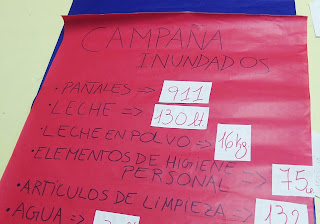 CAMPAÑA
INUNDADOS
• PAÑALES => 911
• LECHE => 130 lt
• LECHE EN POLVO => 16 Kg
• ELEMENTOS DE HIGIENE
PERSONAL =>
• ARTÍCULOS DE LIMPIEZA => 132
• AGUA =>